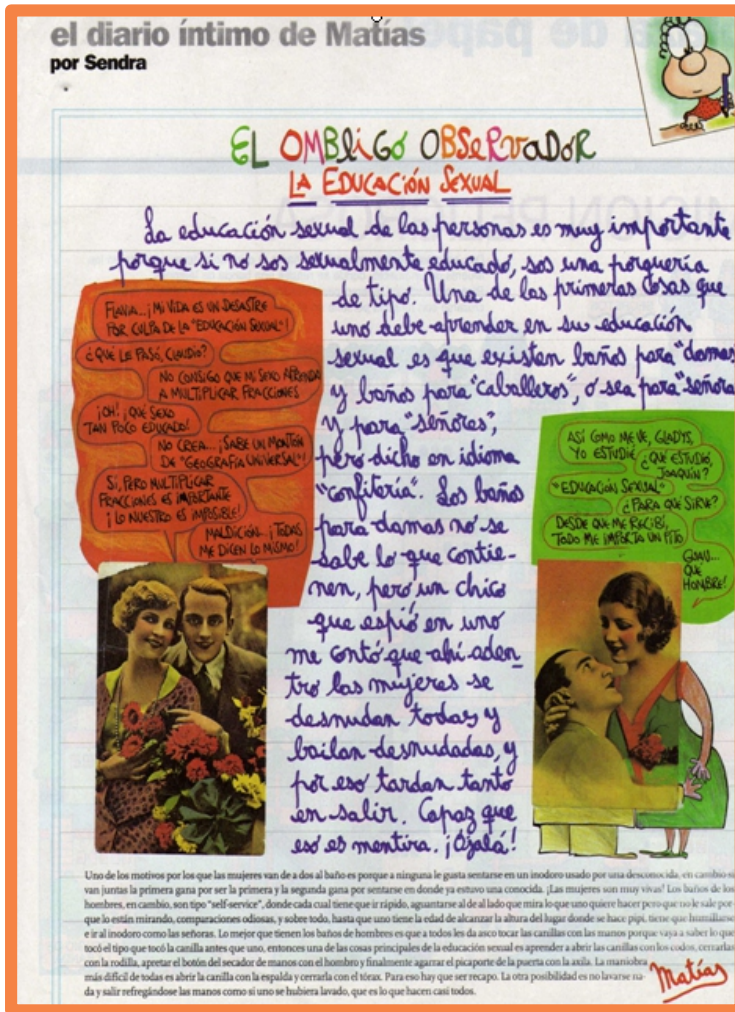 el diario íntimo de Matías
por Sendra
EL OMBLIGO OBSERVADOR
LA EDUCACIÓN SEXUAL
La educación sexual de las personas es muy importante
porque si no sos sexualmente educado, sos una porquería
de tipo. Una de las primeras cosas que
uno debe aprender en su educación
sexual es que existen baños para "damas"
y baños para "caballeros", o sea para "señora
y para "señores",
pero dicho en idioma
"confitería". Los baños
para damas no se
sabe lo que contie-
nen, pero un chico
que espió en uno
me contó que ahí aden
tro las mujeres se
desnudan todas y
bailan desnudadas, y
por eso tardan tanto
en salir. Capaz que
eso es mentira. ¡Ojalá!
FLAVIA... ¡MI VIDA ES UN DESASTRE
POR CULPA DE LA "EDUCACIÓN SEXUAL"!
¿QUÉ LE PASÓ, CLAUDIO?
NO CONSIGO QUE MI SEXO APRENDA
A MULTIPLICAR FRACCIONES
¡OH! ¡QUÉ SEXO
TAN POCO EDUCADO!
NO CREA... ¡SABE UN MONTÓN
DE "GEOGRAFÍA UNIVERSAL"!
SI, PERO MULTIPLICAR
FRACCIONES ES IMPORTANTE
¡LO NUESTRO ES IMPOSIBLE!
MALDICIÓN... ¡TODAS
ME DICEN LO MISMO!
ASÍ COMO ME VE, GLADYS,
YO ESTUDIÉ
¿QUÉ ESTUDIÓ,
JOAQUÍN?
"EDUCACIÓN SEXUAL"
¿PARA QUÉ SIRVE?
DESDE QUE ME RECIBÍ,
TODO ME IMPORTA UN PITO
GUAU...
QUÉ
HOMBRE!
Uno de los motivos por los que las mujeres van de a dos al baño es porque a ninguna le gusta sentarse en un inodoro usado por una desconocida, en cambio si
van juntas la primera gana por ser la primera y la segunda gana por sentarse en donde ya estuvo una conocida. ¡Las mujeres son muy vivas! Los baños de los
hombres, en cambio, son tipo "self-service", donde cada cual tiene que ir rápido, aguantarse al de al lado que mira lo que uno quiere hacer pero que no le sale por
que lo están mirando, comparaciones odiosas, y sobre todo, hasta que uno tiene la edad de alcanzar la altura del lugar donde se hace pipí, tiene que humillarse
e ir al inodoro como las señoras. Lo mejor que tienen los baños de hombres es que a todos les da asco tocar las canillas con las manos porque vaya a saber lo que
tocó el tipo que tocó la canilla antes que uno, entonces una de las cosas principales de la educación sexual es aprender a abrir las canillas con los codos, cerrarlas
con la rodilla, apretar el botón del secador de manos con el hombro y finalmente agarrar el picaporte de la puerta con la axila. La maniobra
más difícil de todas es abrir la canilla con la espalda y cerrarla con el tórax. Para eso hay que ser recapo. La otra posibilidad es no lavarse na-
da y salir refregándose las manos como si uno se hubiera lavado, que es lo que hacen casi todos.
Matías